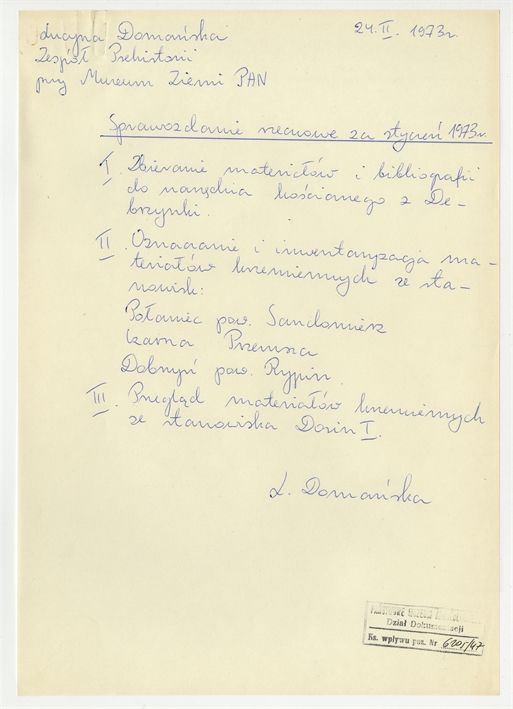 Lucyna Domańska
24.II.1973r.
Zespół Prehistorii
przy Muzeum Ziemi PAN
Sprawozdanie rzeczowe za styczeń 1973r.
I. Zbieranie materiałów i bibliografii
do narzędzia kościanego z De-
brzynki.
II. Oznaczanie i inwentaryzacja ma-
teriałów krzemiennych ze sta-
nowisk:
Połaniec pow. Sandomierz
Czarna Przemsza
Dobrzyń pow. Rypin.
III. Przegląd materiałów krzemiennych
ze stanowiska Dorin I.
L. Domańska
Dział Dokumentacji
Ks. wpływu poz. Nr